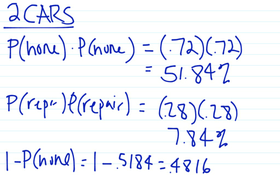 2 CARS
P(none) · P(none) = (.72)(.72)
= 51.84%
P(repair) P(repair) = (.28)(.28)
7.84%
1-P(none) = 1 - .5184 = .4816